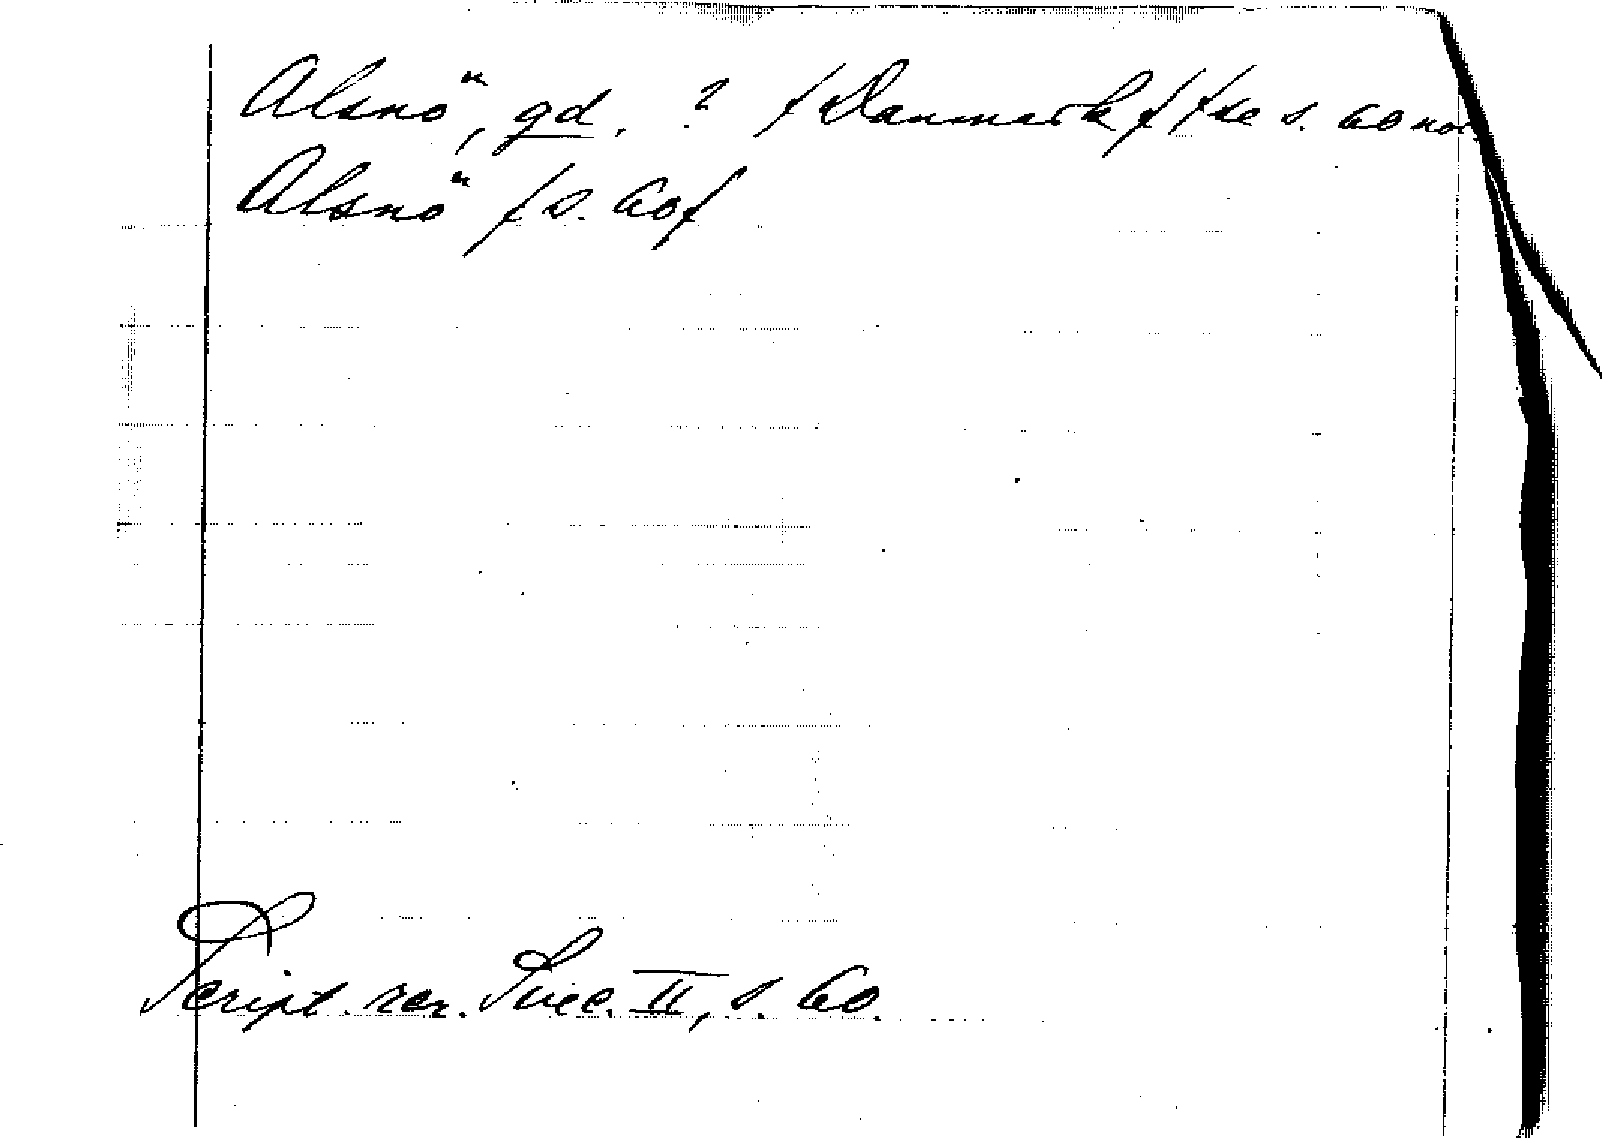 Alsnö, gd. ? / Danmark / / se s. 60 not
Alsnö / s. 60 /
Script. rer. Svec. II, s. 60.